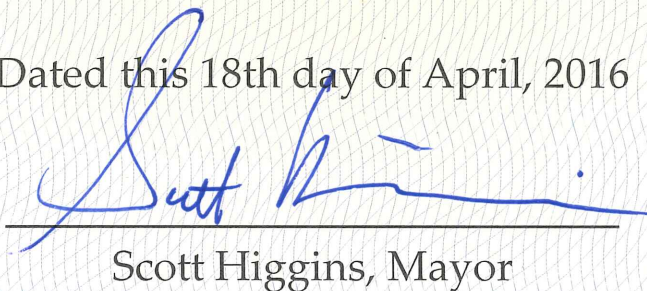 Dated this 18th day of April, 2016
Scott
Scott Higgins, Mayor